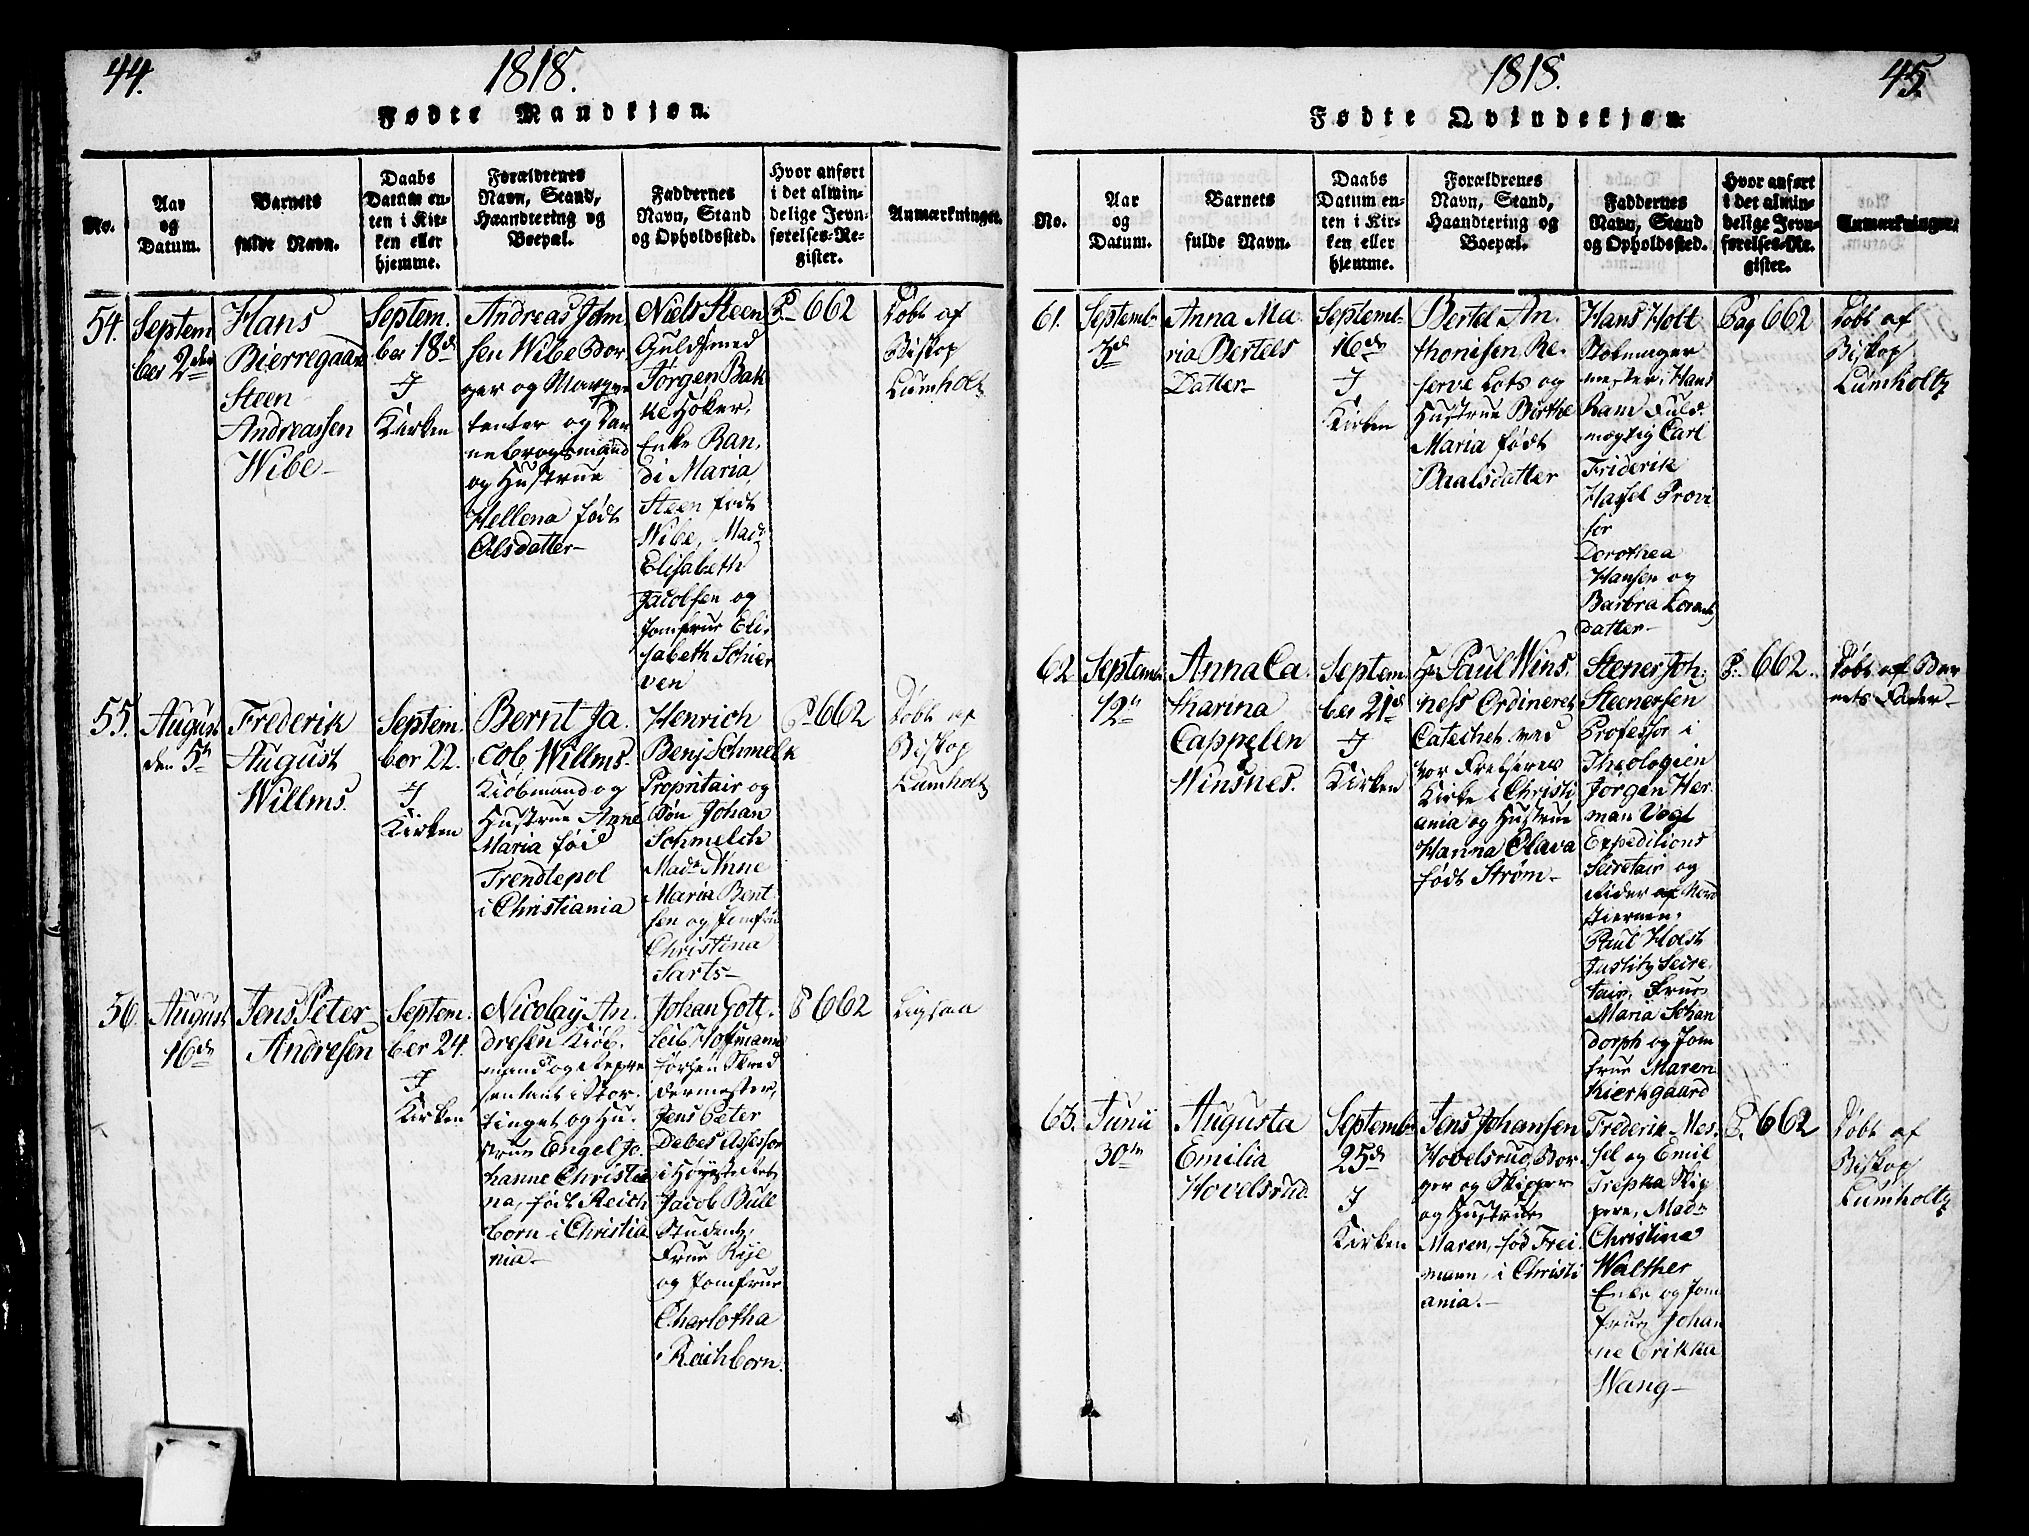 44.
1818.
Fødte Mandkjøn.
No.
Aar
og
Datum.
Barnets
fulde Navn.
Daabs
Datum en-
ten i Kir-
ken eller
hjemme.
Forældrenes
Navn, Stand,
Haandtering og
Boepæl.
Faddernes
Navn, Stand
og Opholdssted.
Hvor anført
i det almin-
delige Jevn-
førelses-Re-
gister.
Anmærkninger.
54.
Septem
ber 2den
Hans
Bierregaard
Steen
Andreassen
Wibe
Septem.
ber 18de
I
Kirken
Andreas John
sen Wibe Bor
ger og Marque
tenter og Dan
nebrogsmand
og Hustrue
Hellena født
Olsdatter
Niels Steen
Guldsmed
Jørgen Bak
ke Høker,
Enke Ran,
di Maria,
Steen født
Wibe, Madm
Elisabeth
Jacobsen og
Jomfrue Eli,
sabeth Schier
ven
P 662
Døbt af
Biskop
Lumholtz
55.
August
den 5te
Frederik
August
Willms.
Septem.
ber 22.
I
Kirken
Bernt Ja
cob Willms.
Kiøbmand og
Hustrue Anne
Maria fød
Trendtepol
i Christiania
Henrich
Benj Schmelk
Propritair og
Søn Johan
Schmelch
Madm Anne
Maria Bent
sen og Jomfru
Christina
Sarts
P 662
Døbt af
Biskop
Lumholtz
56.
August
16de
Jens Peter
Andresen
Septem.
ber 24.
I
Kirken
Nicolay An,
dresen Kiøb,
mand og Repre
sentant i Stor,
tinget og Hu,
strue Engel Jo
hanne Christia
na, født Reich
born i Christia
nia
Johan Gott,
leib Hoffmann
Jørsen Skred
dermester,
Jens Peter
Debes Assessor
i Høyeste Ret,
Jacob Bull
Student,
Frue Kye
og Jomfrue
Charlotha
Reichborn.
P 662
Ligsaa
1818.
45.
Fødte Qvindekjøn.
No.
Aar
og
Datum.
Barnets
fulde Navn.
Daabs
Datum en-
ten i Kir-
ken eller
hjemme.
Forældrenes
Navn, Stand,
Haandtering og
Boepæl.
Faddernes
Navn, Stand
og Opholdssted.
Hvor anført
i det almin-
delige Jevn-
førelses-Re-
gister.
Anmærkninger.
61.
Septembr
Anna Ma,
ria Bertels
Datter
Septemb
16de
I
Kirken
Bertel An,
thonisen Re,
serve Lots og
Hustrue Birthe
Maria født
Hans Holt
Stolmager
mester, Hans
Ram Fuld,
mægtig Carl
Friderik
Hassel Provi
sor
Dorothea
Hansen og
Barbra Lorentz
datter
Pag 662
Døbt af
Biskop
Lumholtz
62
Septembr
12te
Anna Ca,
tharina
Cappelen
Winsnes.
Septem,
ber 21de
I
Kirken
Hr Paul Wins,
ness Ordineret
Catechet ved
Vor Frelseres
Kirke i Christi
ania og Hustrue
Hanna Olava
født Strøm
Stener Joh,
Steenersen
Professor i
Theologien
Jørgen Her,
man Vogt
Expeditions
Secretair og
Ridder af Nord
stiernen,
Paul Holst
Justitz Secre,
tair, Frue
Maria Schan
dorph og Jom
frue Maren
Kierkgaard
P. 662
Døbt af Bar
nets Fader
63.
Junii
30te
Augusta
Emilia
Hovelsrud.
Septembr
25de
I
Kirken
Jens Johansen
Hovelsrud, Bor,
ger og Skipper
og Hustrue
Maren, fød Frei,
mann, i Christi
ania.
Frederik Mes,
sel og Emil
Trepka Skip
pere, Madm
Christina
Walther
Enke og Jom
frue Johan
ne Erikka
Wang
P. 662
Døbt af
Biskop
Lumholtz